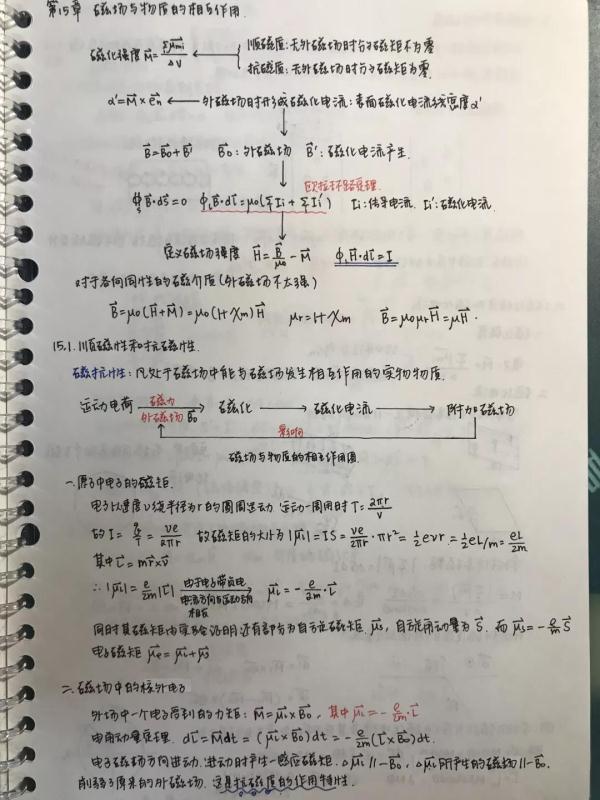 第15章 磁场与物质的相互作用
磁化强度 M⃗ = Σμ⃗mi / ΔV ← { 顺磁质：无外磁场时分子磁矩不为零
抗磁质：无外磁场时分子磁矩为零.
α' = M⃗ × e⃗n ← 外磁场时形成磁化电流：表面磁化电流线密度 α'
B⃗ = B⃗0 + B⃗'  B⃗0：外磁场  B⃗'：磁化电流产生.
安培环路定理.
∮s B⃗·dS⃗ = 0  ∮L B⃗·dl⃗ = μ0(ΣIi + ΣIi')  Ii：传导电流. Ii'：磁化电流.
定义磁场强度 H⃗ = B⃗/μ0 − M⃗  ∮L H⃗·dl⃗ = I
对于各向同性的磁介质（外磁场不太强）
B⃗ = μ0(H⃗+M⃗) = μ0(1+χm)H⃗  μr = 1+χm  B⃗ = μ0μrH⃗ = μH⃗.
15.1. 顺磁性和抗磁性.
：凡处于磁场中能与磁场发生相互作用的实物物质.
运动电荷 —磁力/外磁场 B⃗0→ 磁化 → 磁化电流 → 附加磁场
影响
磁场与物质的相互作用图
一. 原子中电子的磁矩.
电子以速度v绕半径为r的圆周运动 运动一周用时 T = 2πr/v
故 I = q/T = ve/2πr  故磁矩的大小为 |μ⃗l| = IS = ve/2πr · πr² = ½evr = ½eL/m = eL/2m
其中 L⃗ = m r⃗ × v⃗
∴ |μ⃗l| = e/2m |L⃗| —由于电子带负电 电流方向与运动方向相反→ μ⃗l = − e/2m · L⃗
同时其磁矩由实验会证明还有部分为自旋磁矩 μ⃗s, 自旋角动量为 S⃗. 而 μ⃗s = − e/m S⃗
电子磁矩 μ⃗e = μ⃗l + μ⃗s
二. 磁场中的核外电子
外场中一个电子受到的力矩：M⃗ = μ⃗l × B⃗0, 其中 μ⃗l = − e/2m · L⃗
由角动量定理. dL⃗ = M⃗dt = (μ⃗l × B⃗0)dt = − e/2m (L⃗ × B⃗0)dt.
电子磁场方向进动. 进动时产生一感应磁矩. Δμ⃗l // −B⃗0, Δμ⃗l 所产生的磁场 // −B⃗0.
削弱了原来的外磁场. 这是抗磁质的作用特性.